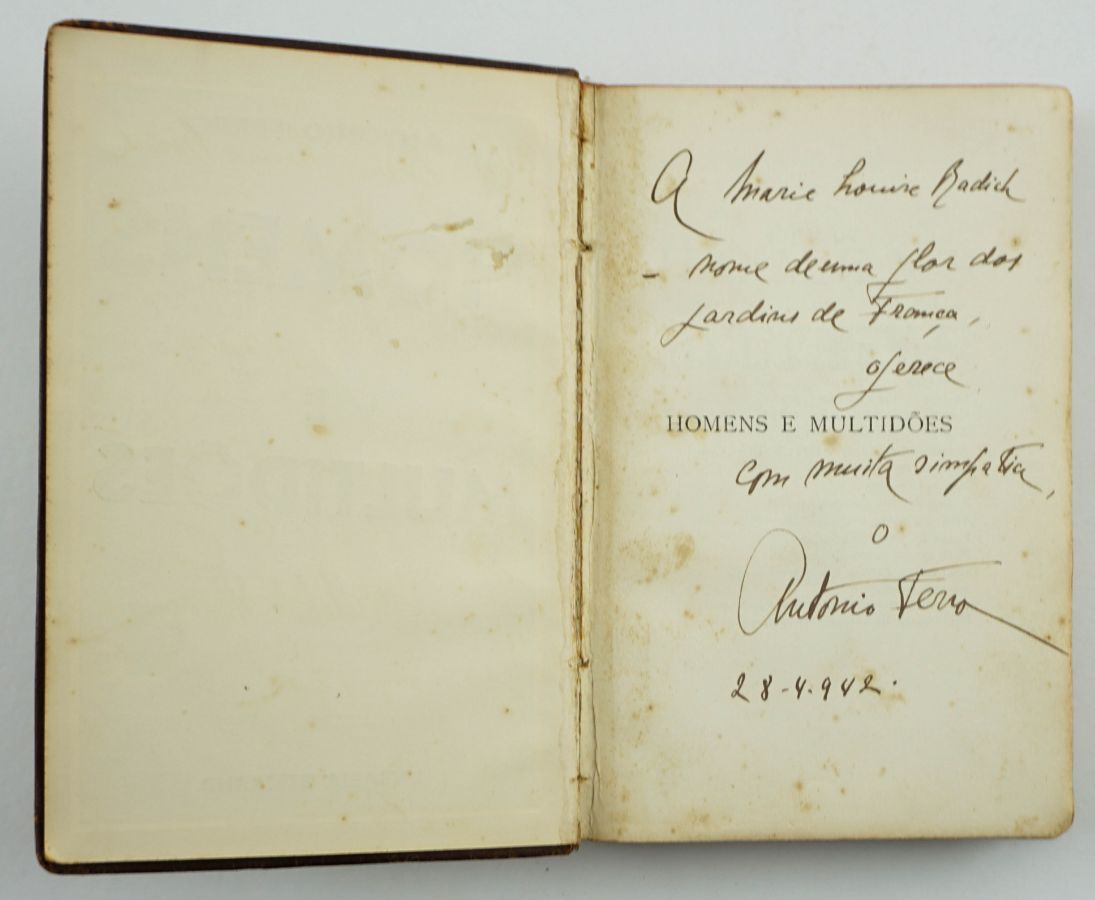 A Marie Louise Badich
- nome de uma flor dos
jardins de França,
oferece
HOMENS E MULTIDÕES
com muita simpatia,
o
António Ferro
28-4-942.